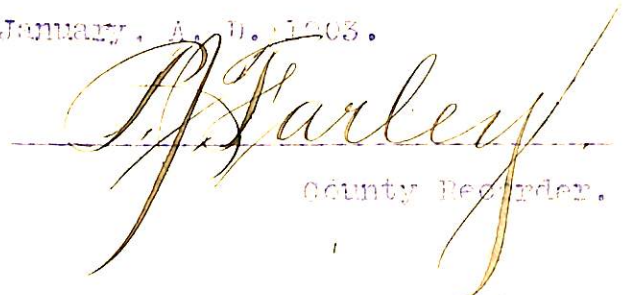 January, A. D. 1903.
P. J. Farley.
County Recorder.